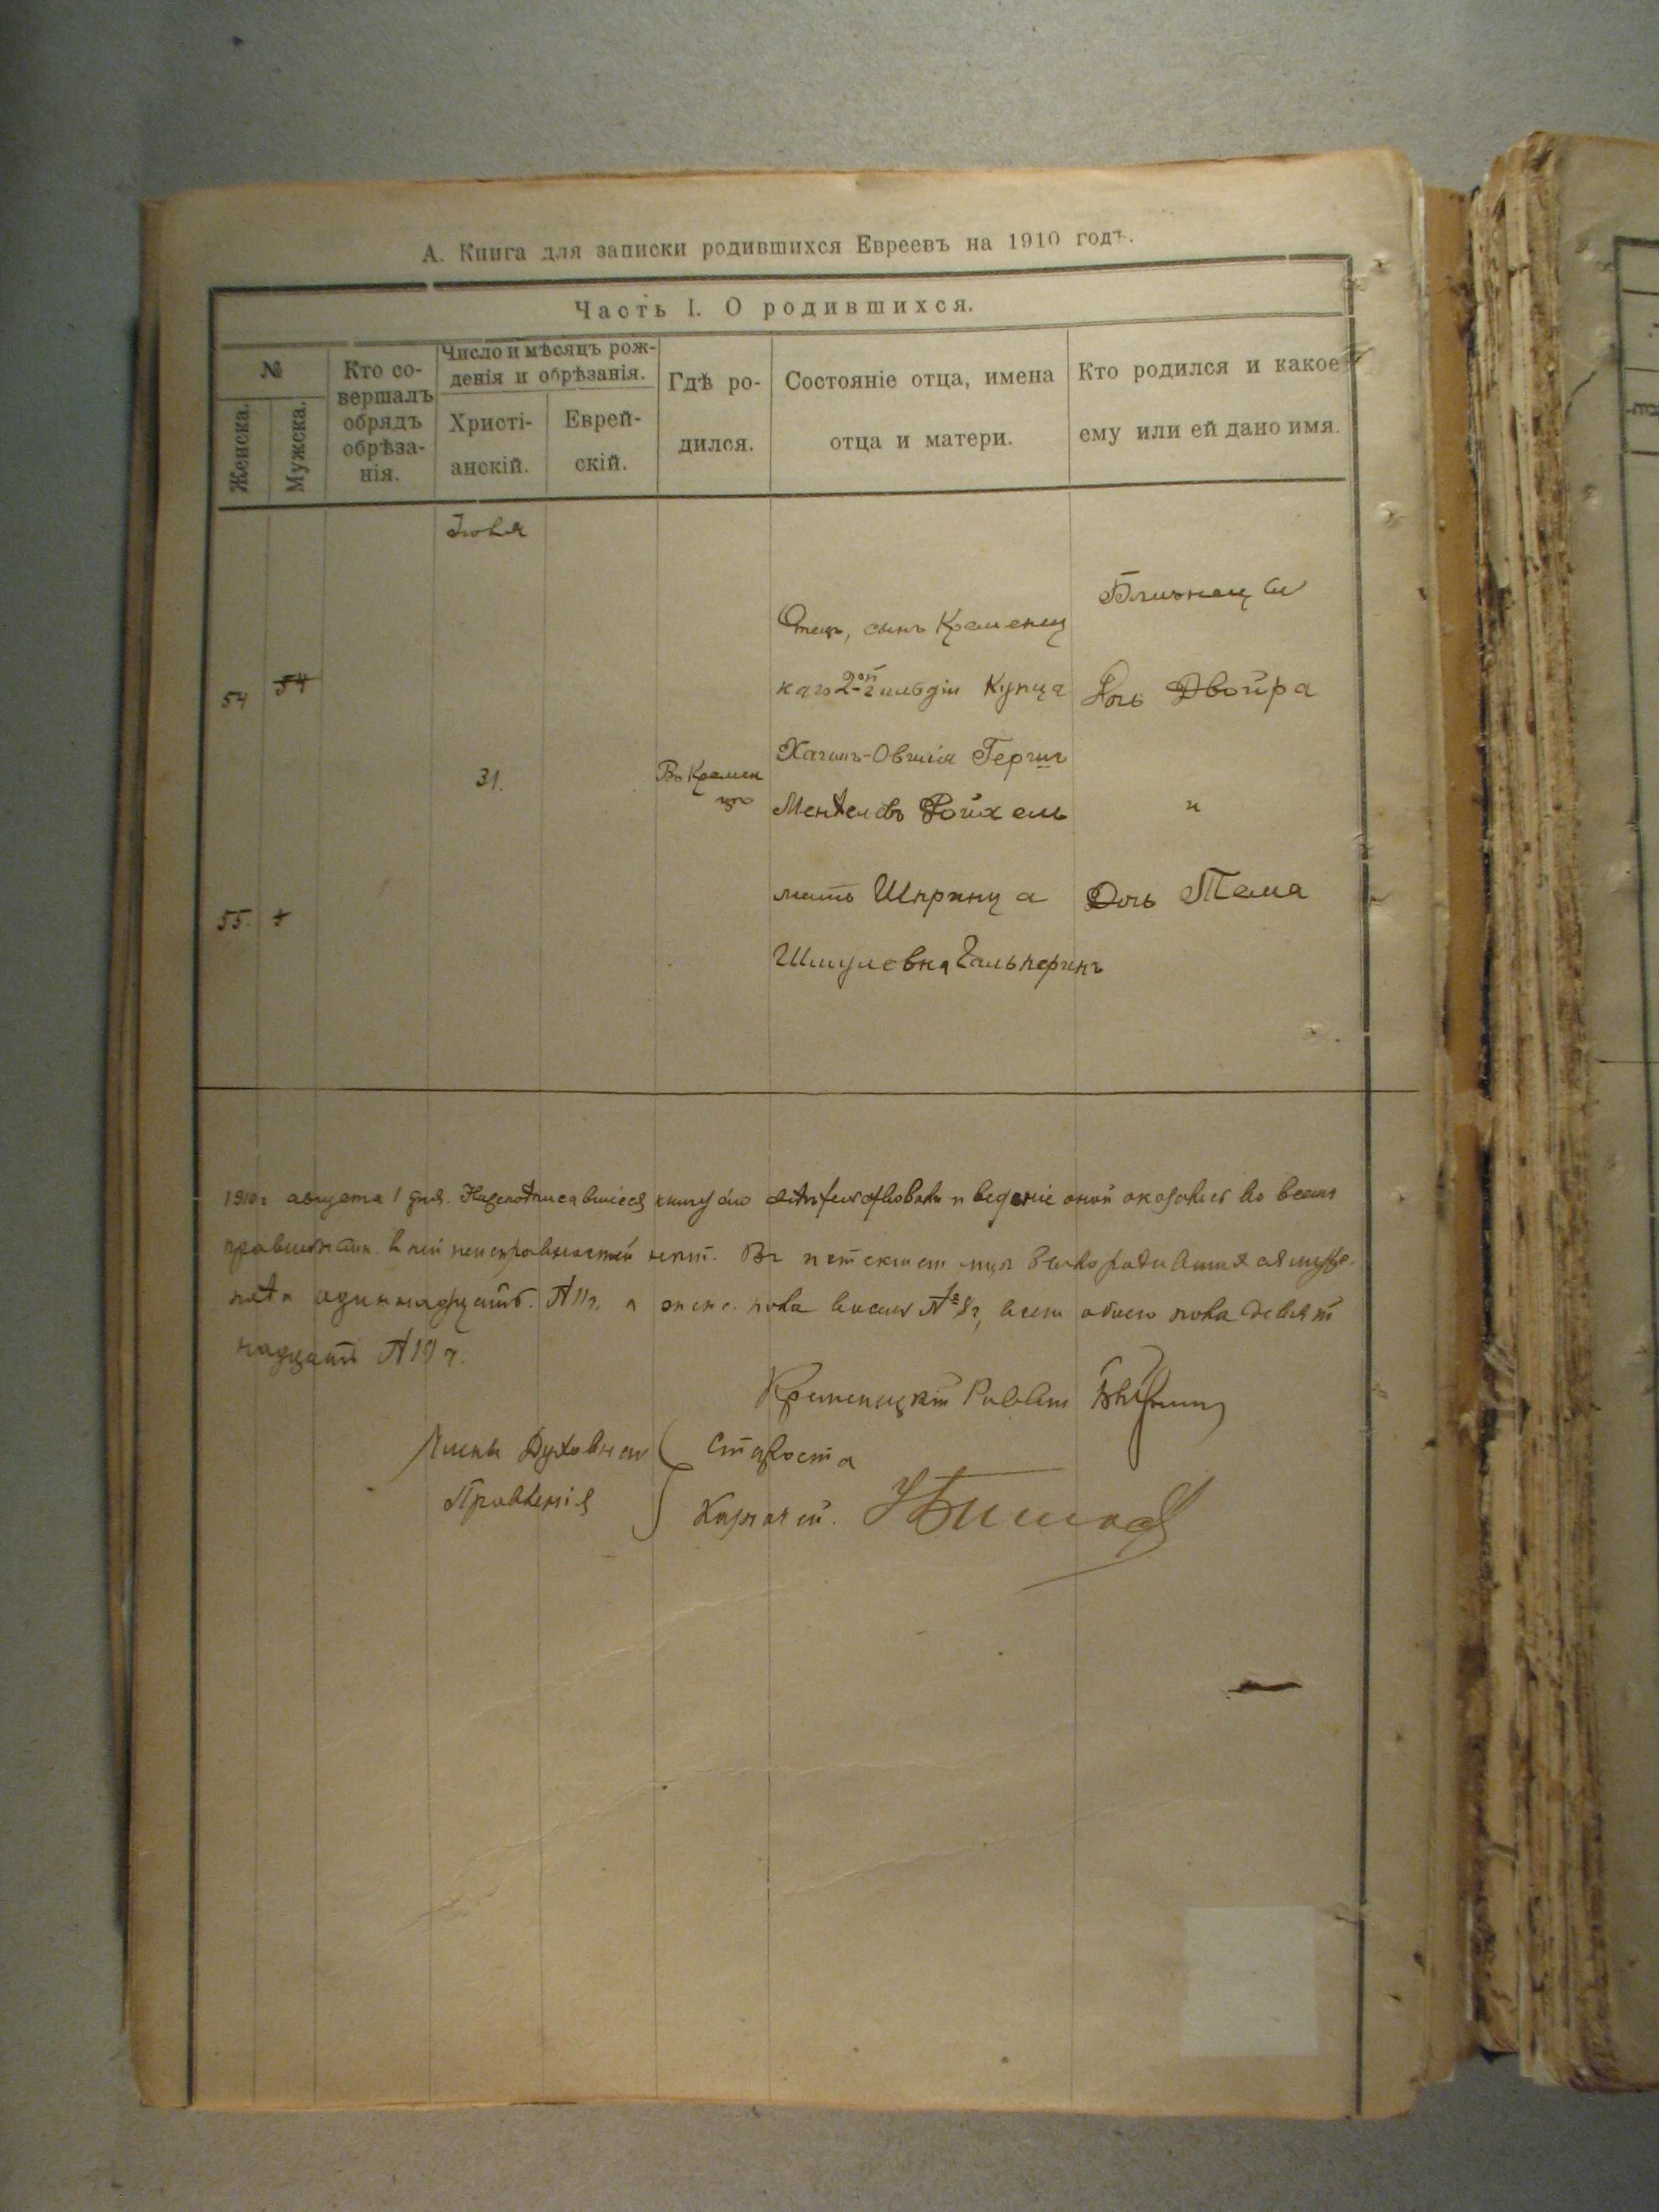 А. Книга для записки родившихся Евреевъ на 1910 годъ.
Часть I. О родившихся.
№
Женска.
Мужска.
Кто со-
вершалъ
обрядъ
обрѣза-
нія.
Число и мѣсяцъ рож-
денія и обрѣзанія.
Христі-
анскій.
Еврей-
скій.
Гдѣ ро-
дился.
Состояніе отца, имена
отца и матери.
Кто родился и какое
ему или ей дано имя.
Іюля
Близнецы
54
54
31.
Въ Кремен
цѣ
Отецъ, сынъ Кременец
каго 2-ой гильдіи Купца
Герш
Менделевъ Ройхель
мать Шпринца
Шмулевна Гальперинъ
Дочь Двойра
и
55.
Дочь Тема
1910 г. августа 1 дня. книгу сію и веденіе оной оказалось во всемъ
правильнымъ. в ней неисправностей нетъ. Въ истекшем было родившихся
одиннадцать. № 11, а женс. пола восемь № 8, всего обоего пола девят
надцать № 19
Кременецкій Раввин
Члены Духовнаго
Правленія
Староста
Казначей.